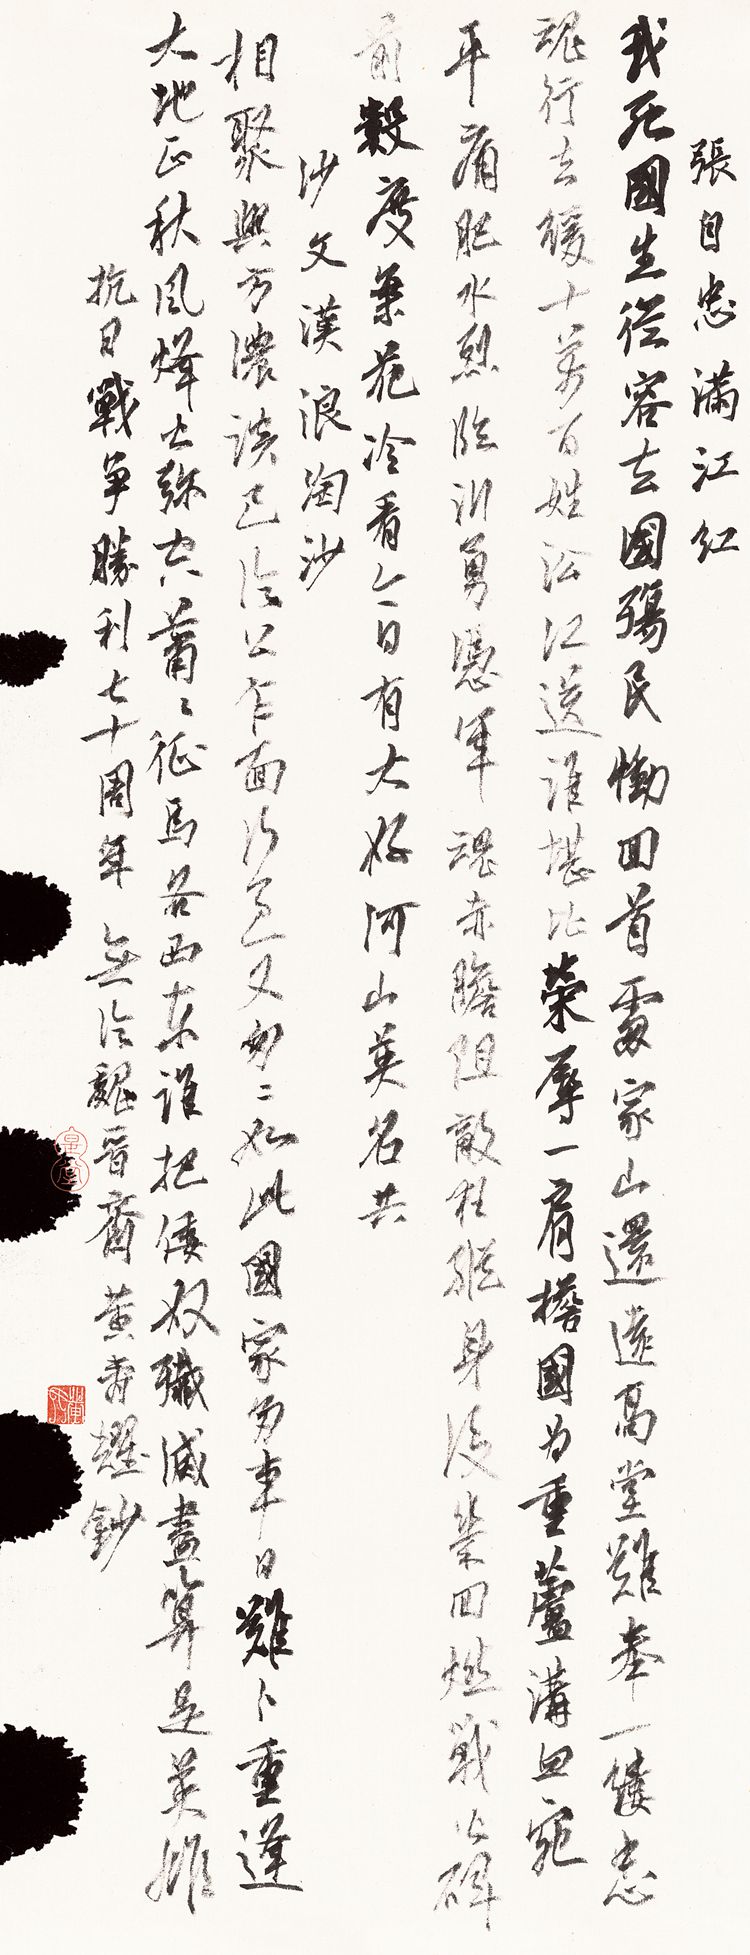 張自忠滿江紅
我死國生從容去國殤民慟回首處家山還遠高堂難奉一縷忠
魂行去緩十萬百姓沿江送誰堪比榮辱一肩擔國為重蘆溝血宛
平痛肥水烈臨沂勇憑軍魂赤膽阻敵狂縱身後柴田燃戰火碑
前幾度葉花冷看今日有大好河山英名共
沙文漢浪淘沙
相聚興方濃談已從公乍面行色又匆々如此國家多事日難卜重逢
大地正秋風烽火彌空蕭々征馬各西東誰把倭奴殲滅盡算是英雄
抗日戰爭勝利七十周年無論魏晉齋黃壽耀鈔